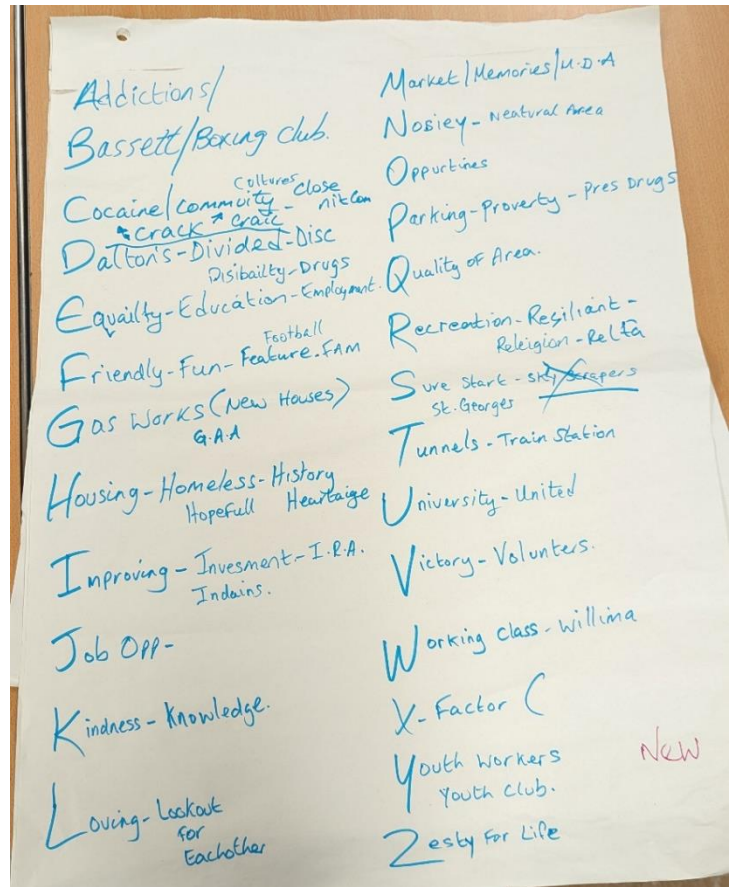 Addictions/
Bassett/Boxing club.
Coltures
Cocaine/commuity - close
nit com
crack craic
Dalton's - Divided - Disc
Disibailty - Drugs
Equailty - Education - Employment.
Football
Friendly - Fun - Feature. FAM
Gas Works (New Houses)
G.A.A
Housing - Homeless - History
Hopefull Heartaige
Improving - Invesment - I.R.A.
Indains.
Job Opp -
Kindness - Knowledge.
Loving - Lookout
for
Eachother
Market/Memories/M.D.A
Nosiey - Neatural Area
Oppurtines
Parking - Proverty - Pres Drugs
Quality of Area.
Recreation - Resiliant -
Releigion -
Sure Start - Sky Scrapers
St. Georges
Tunnels - Train Station
University - United
Victory - Volunters.
Working class - Willima
X - Factor (
Youth Workers
Youth club.
New
Zesty For Life